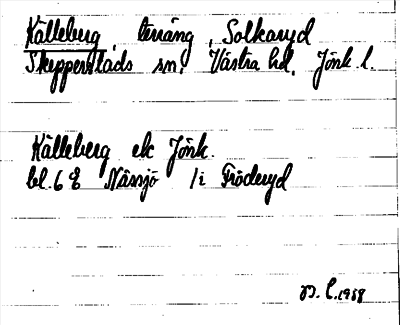 Källeberg, terräng, Solkaryd
Skepperstads sn, Västra hd, Jönk. l.
Källeberg ek Jönk.
bl. 6 E Nässjö /i Fröderyd
1989